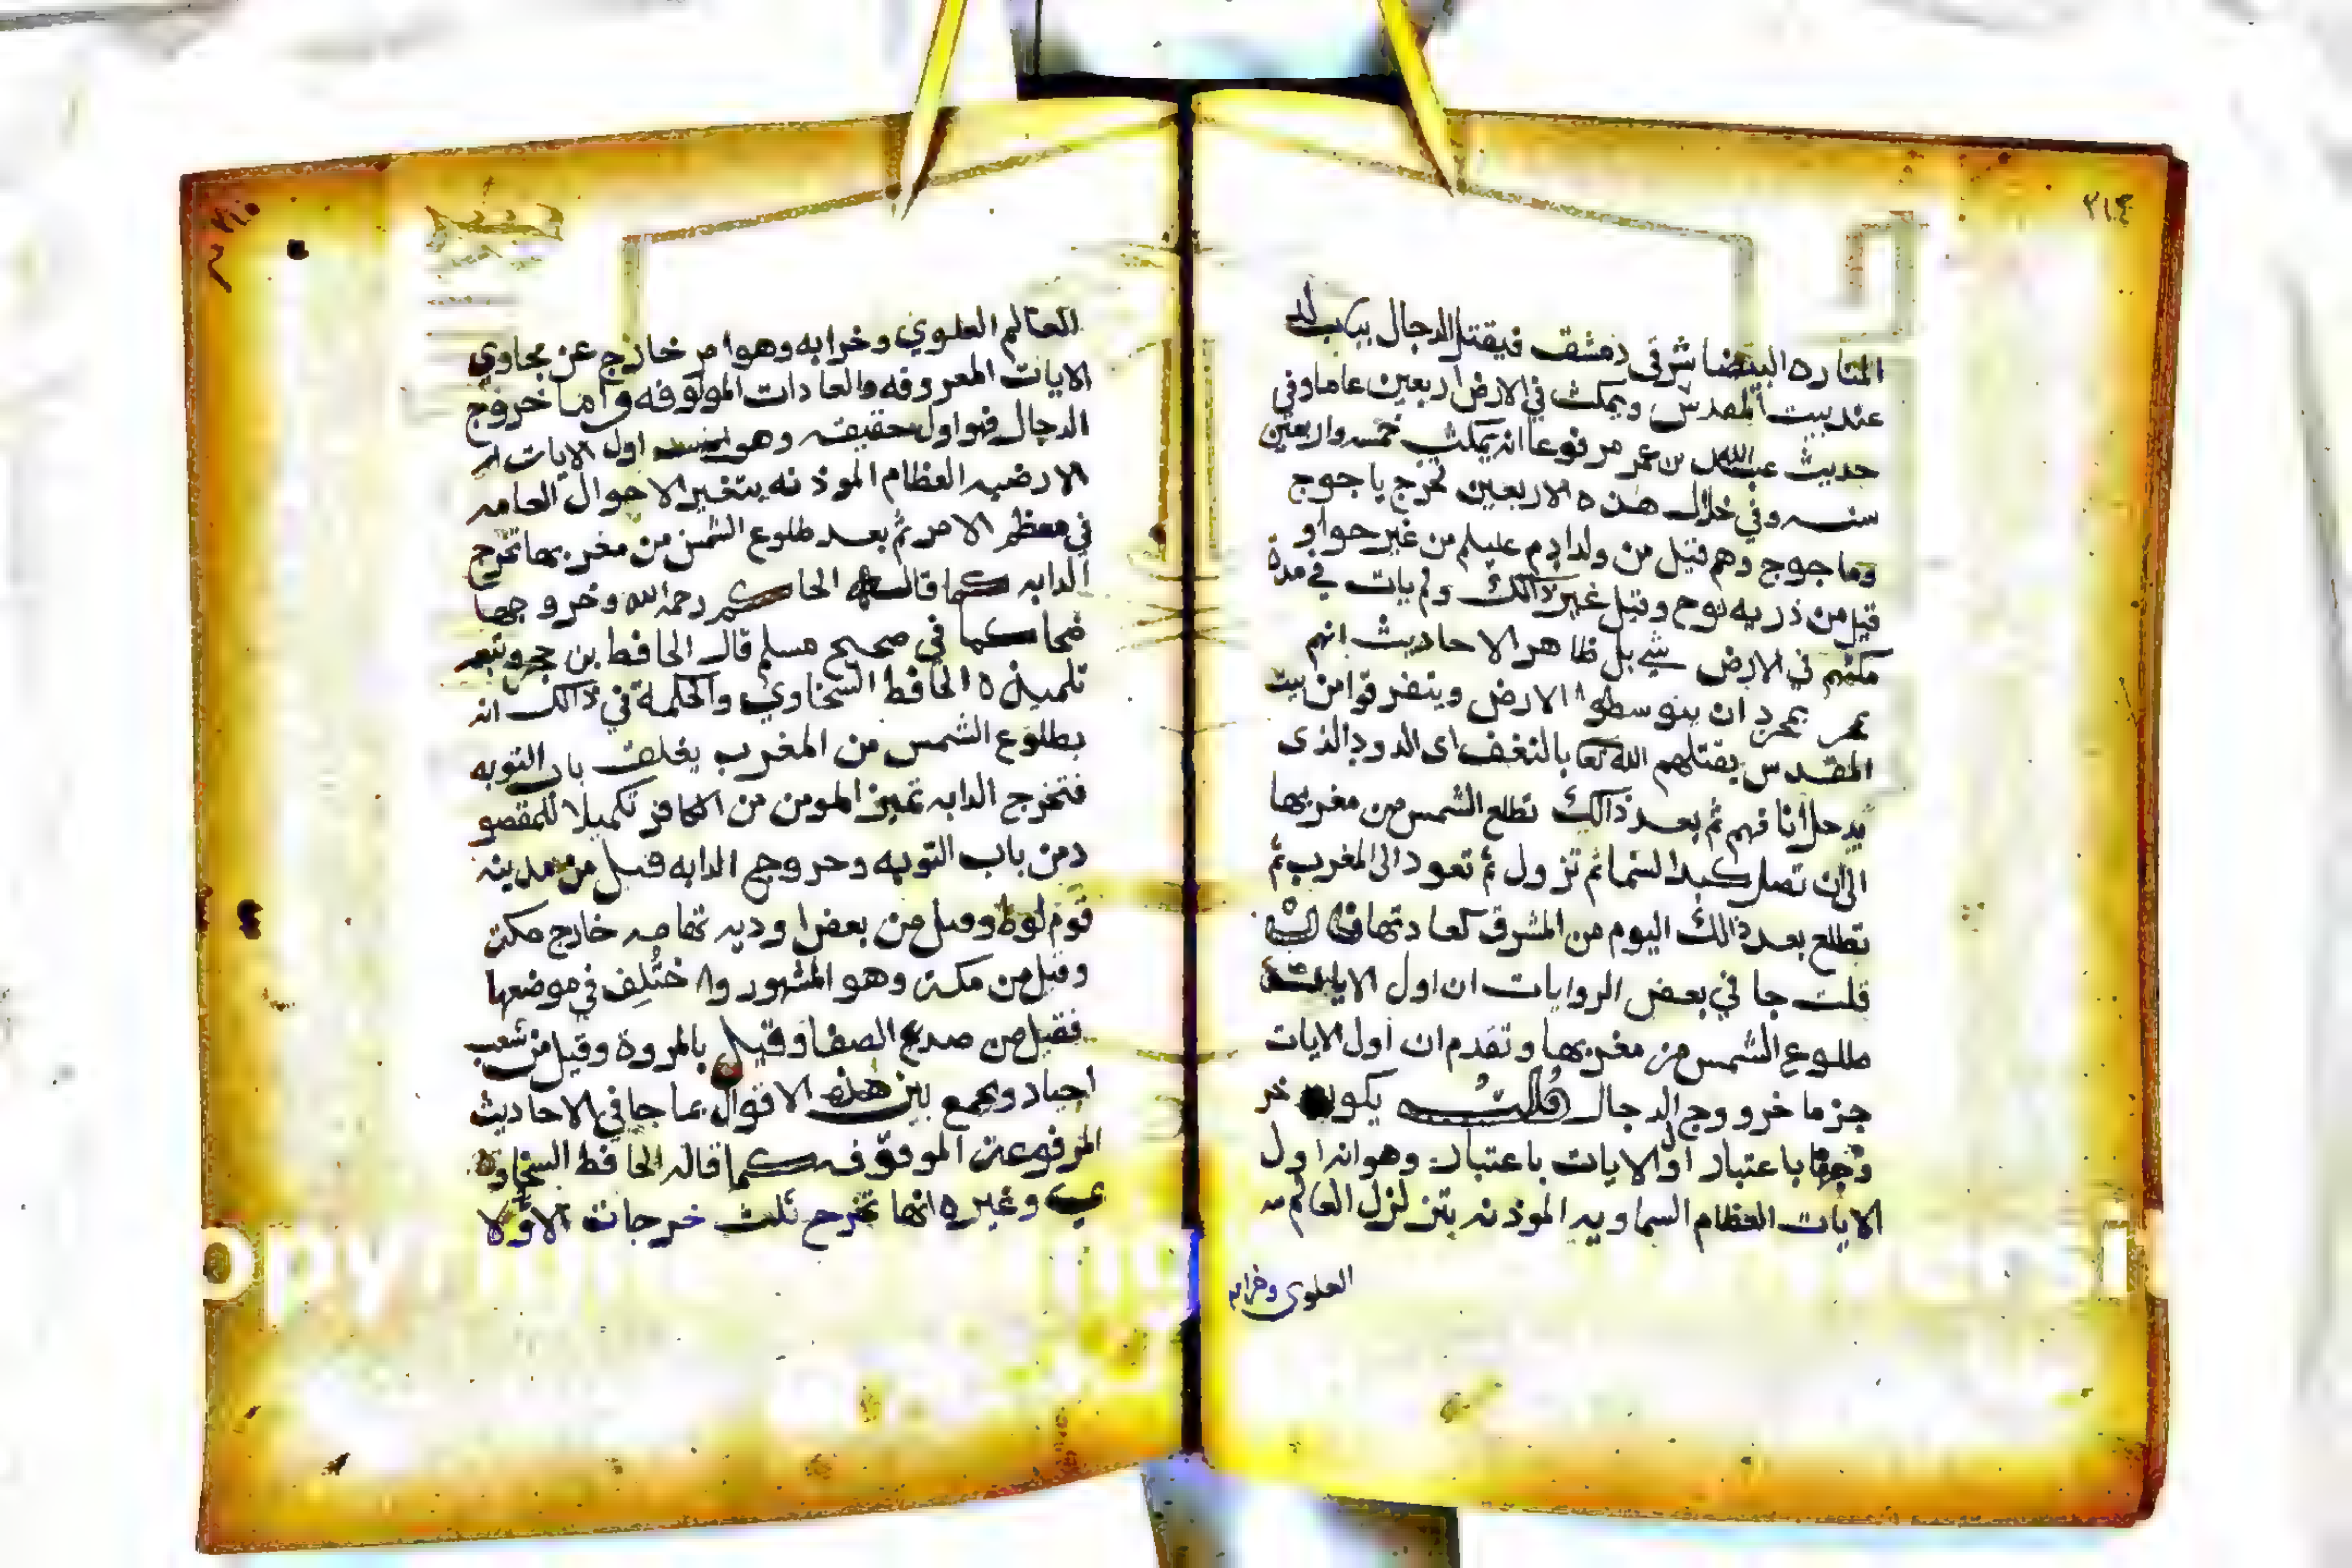 ٣١٤
المناره البيضا شرقي دمشق فيقتل الدجال بباب لد
عند بيت المقدس ويمكث في الارض اربعين عاما وفي
حديث عبدالله بن عمر مرفوعا انه يمكث خمسه واربعين
سنه وفي خلال هذه الاربعين تخرج ياجوج
وماجوج وهم قيل من ولد ادم عليلم من غير حوا و
قيل من ذريه نوح وقيل غير ذالك ولم يات في مدة
مكثهم في الارض شي بل ظاهر الاحاديث انهم
بمجرد ان يتوسطوا الارض وينفرقوا من بيت
المقدس يقتلهم الله تعا بالنغف اى الدود الذى
يدخل انافهم ثم بعد ذالك تطلع الشمس من مغربها
الى ان تصل كبد السما ثم تزول ثم تعود الى المغرب ثم
تطلع بعد ذالك اليوم من المشرق كعادتها
قلت جا في بعض الروايات ان اول الايات
طلوع الشمس من مغربها وتقدم ان اول الايات
جزما خرووج الدجال قلت يكون خر
وجها باعتبار اول الايات باعتبار وهو انه اول
الايات العظام السماويه الموذنه بتزلزل العالم
العلوي وخرابه
٣١٥
العالم العلوي وخرابه وهو امر خارج عن مجاوي
الايات المعروفه والعادات المولوفه واما خروج
الدجال فهو اول حقيقه وهو اول الايات
الارضيه العظام الموذنه بتغير الاحوال العامه
في معظم الامر ثم بعد طلوع الشمس من مغربها تخرج
الدابه كما قاله الحاكم رحمه الله وخروجها
ضحا كما في صحيح مسلم قال الحافظ بن حجر وتبعه
تلميذه الحافظ السخاوي والحكمة في ذالك انه
بطلوع الشمس من المغرب يغلق باب التوبه
فتخرج الدابه تميز المومن من الكافر تكميلا للمقصو
د من باب التوبه وخروج الدابه قيل من مدينه
قوم لوط وقيل من بعض اوديه تهامه خارج مكه
وقيل من مكه وهو المشهور واختلف في موضعها
فقيل من صدع الصفا وقيل بالمروة وقيل من شعب
اجياد ويجمع بين هذه الاقوال بما جا في الاحاديث
المرفوعه الموقوفه كما قاله الحافظ السخاو
ي وغيره انها تخرج ثلث خرجات الاولا